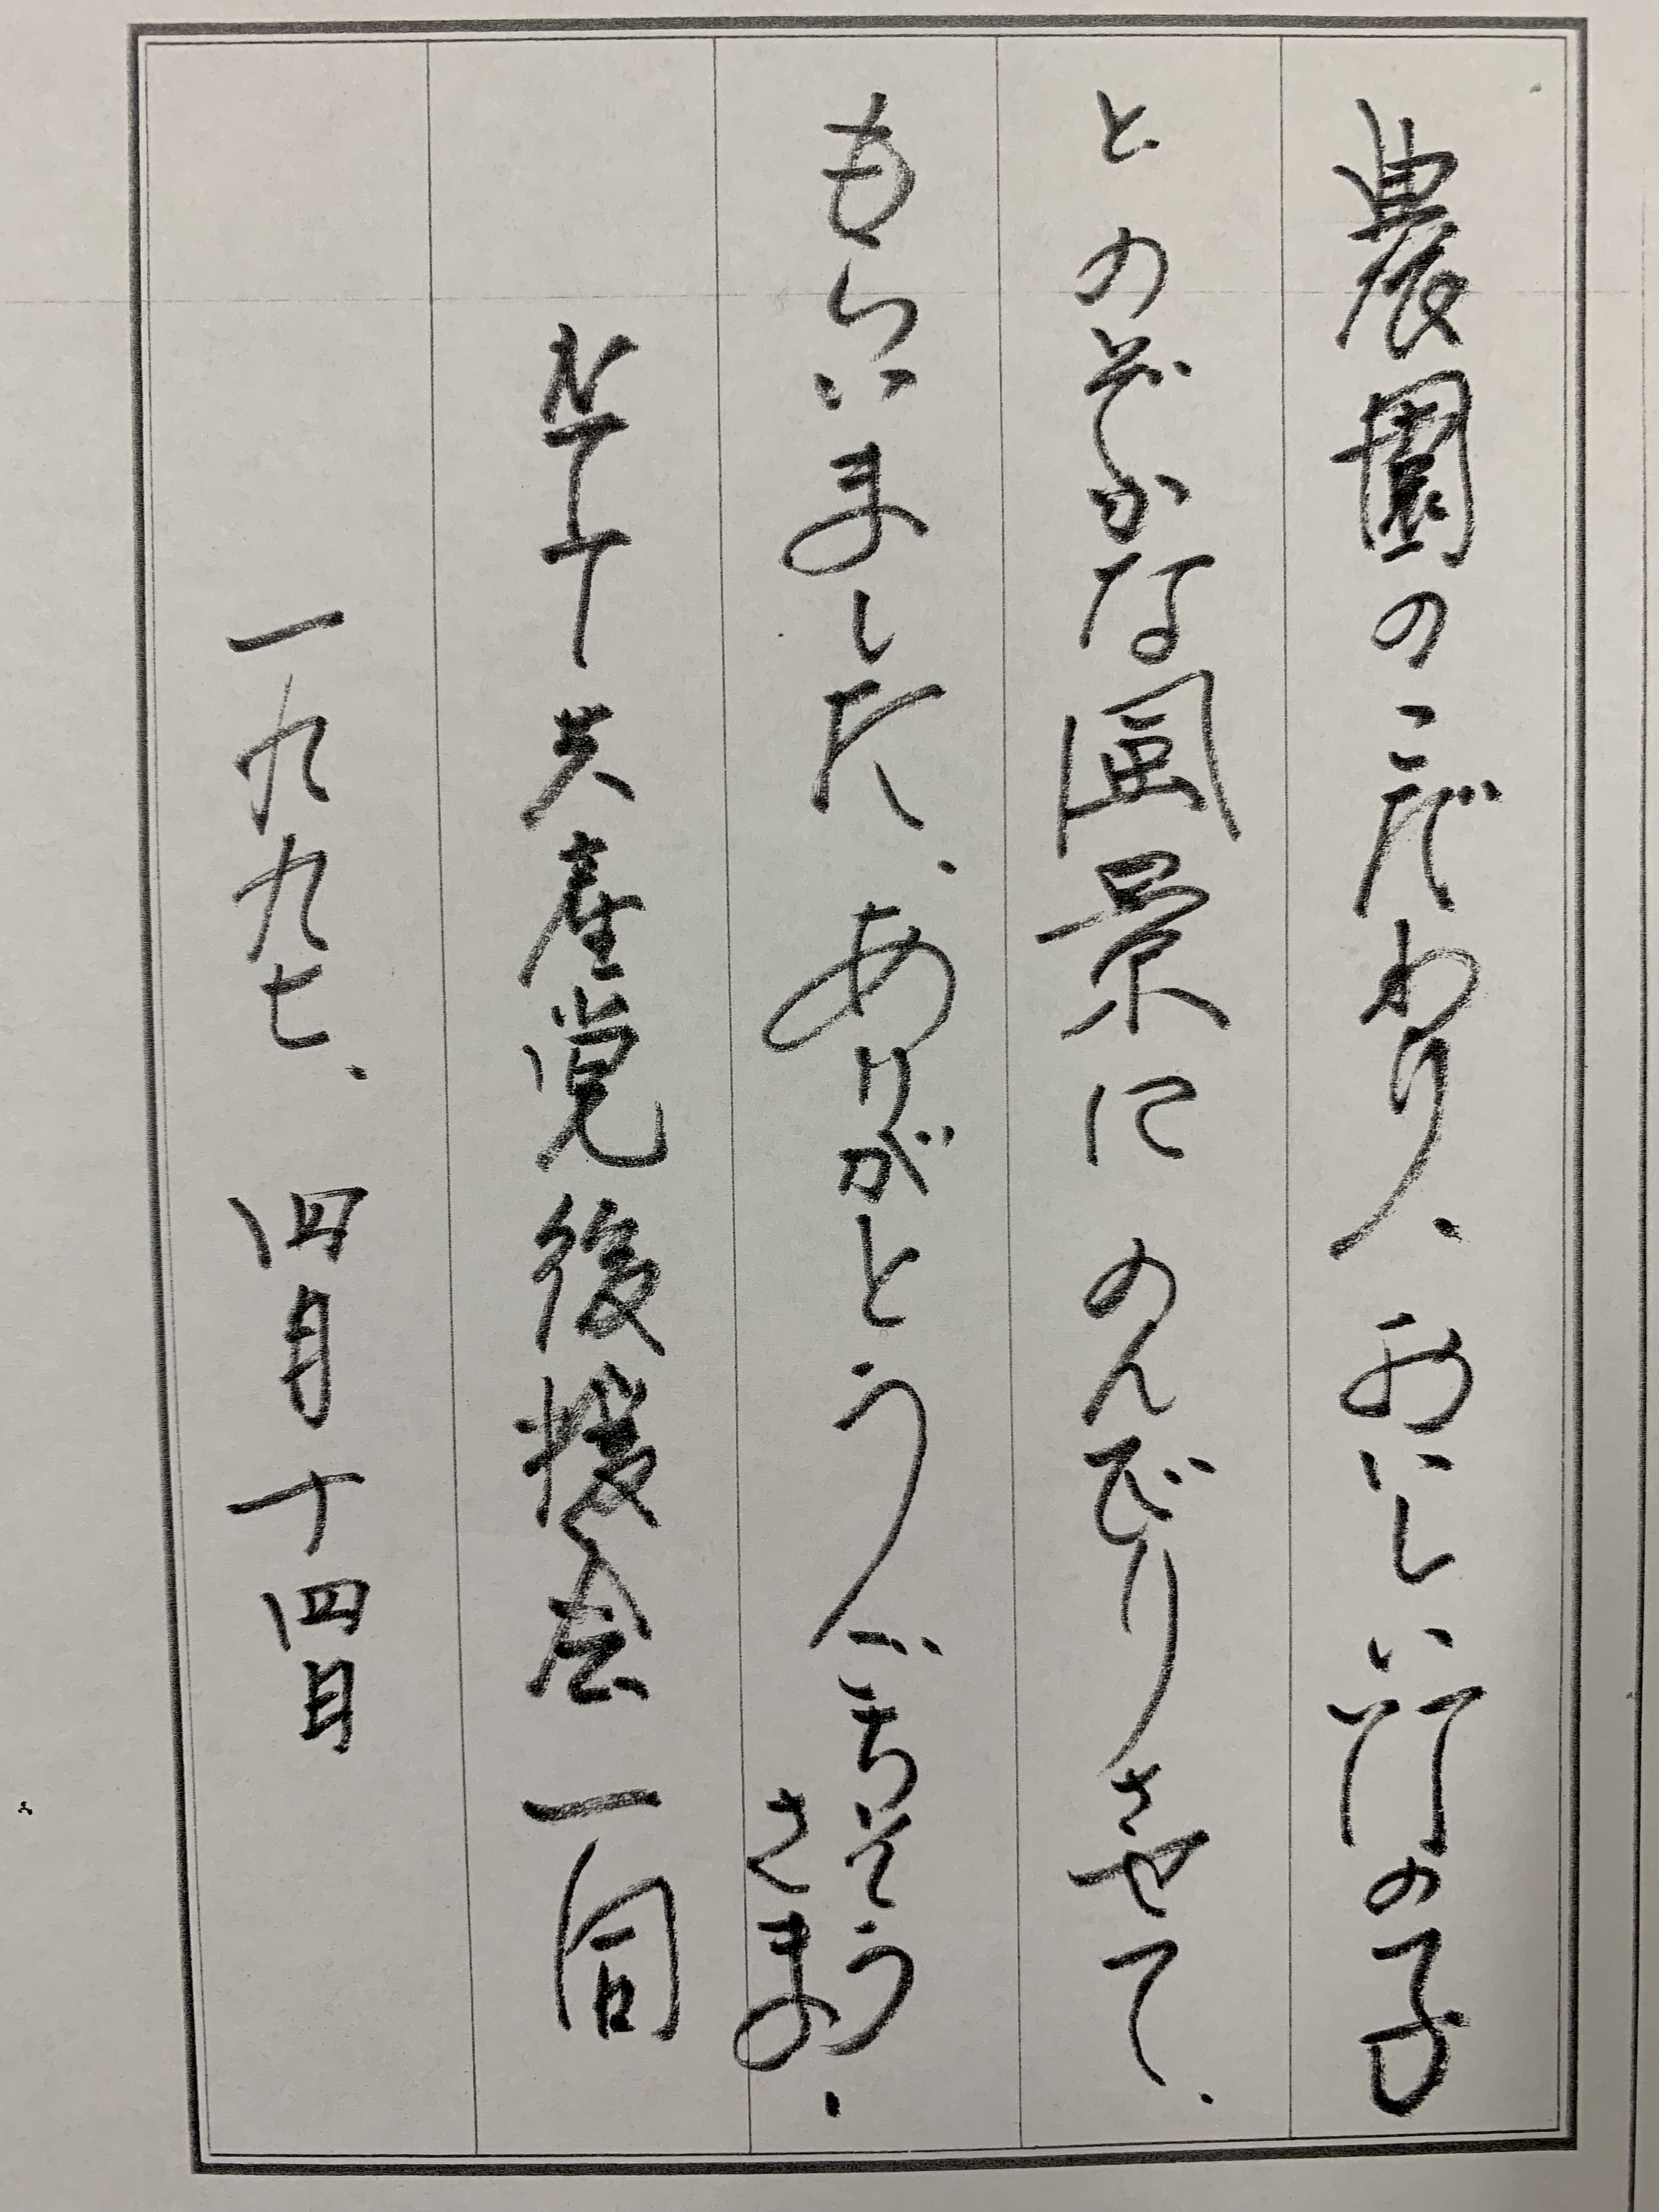 農園のこだわり、おいしい竹の子
とのどかな風景にのんびりさせて、
もらいました、ありがとうごちそうさま、
共産党後援会一同
一九九七、四月十四日